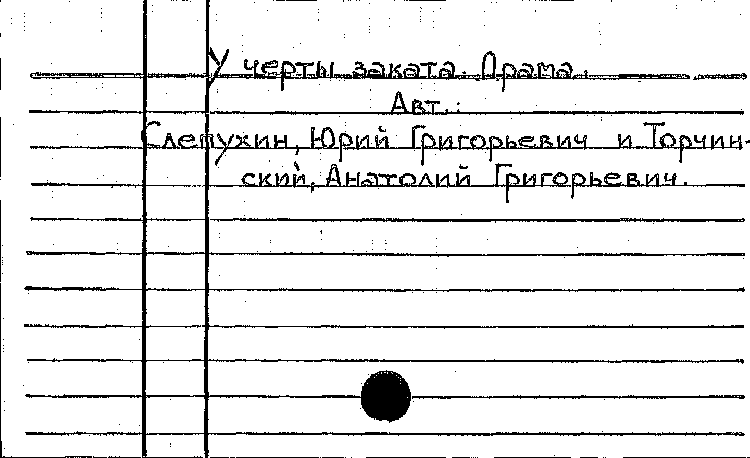 У черты заката. Драма.
Авт.:
Слепухин, Юрий Григорьевич и Торчин-
ский, Анатолий Григорьевич.